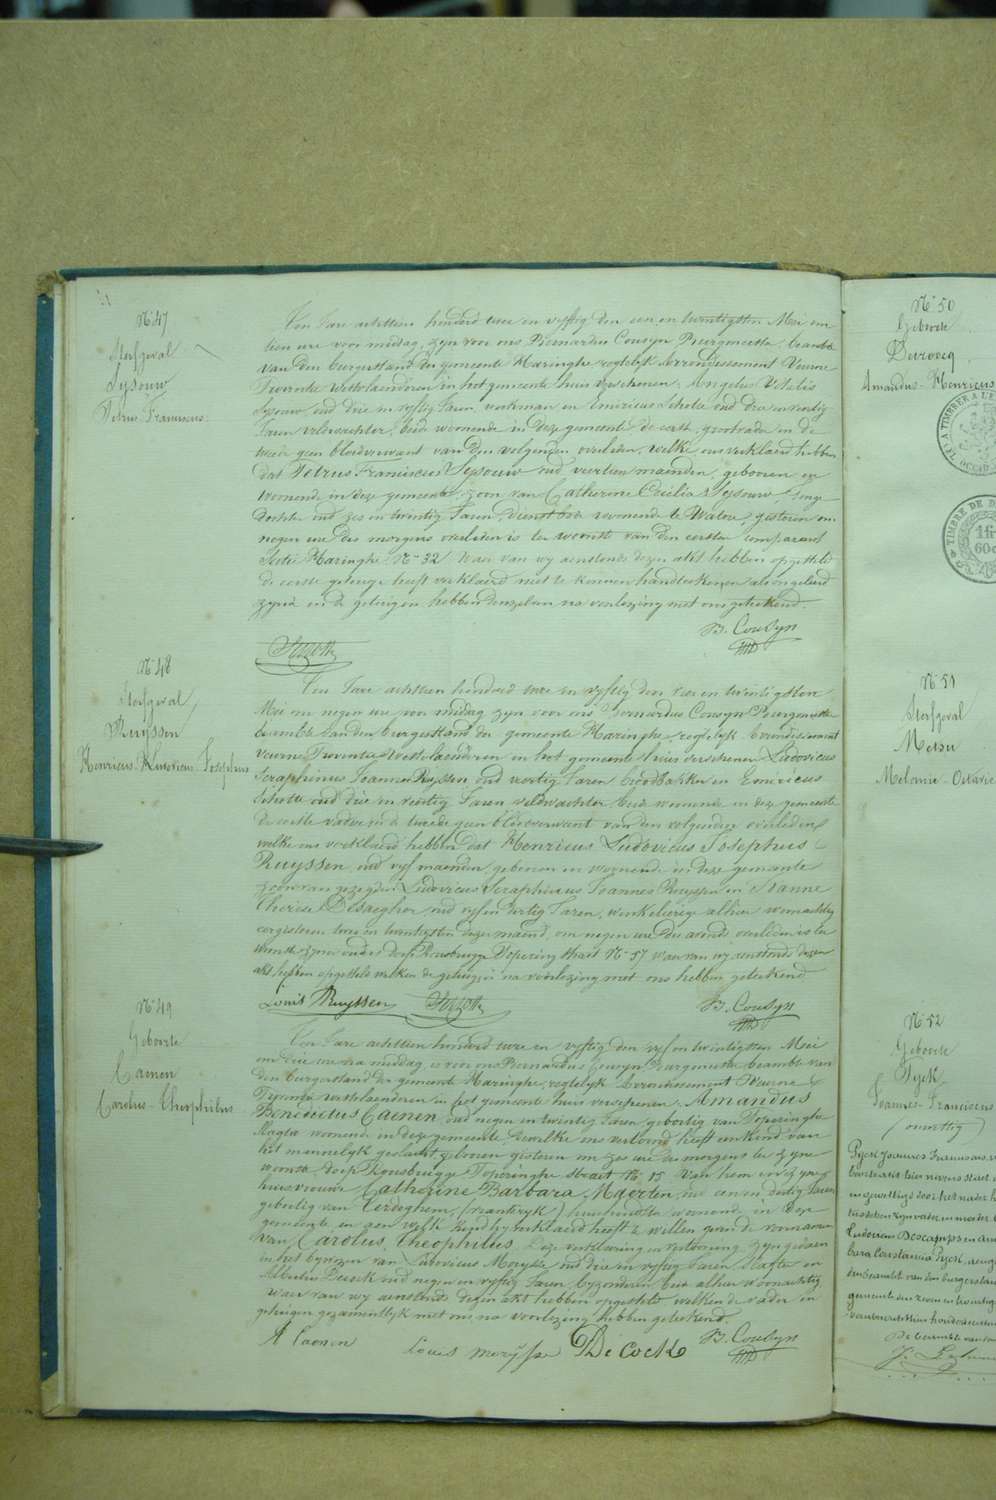 N° 47
Sterfgeval
Sysouw
Petrus Franciscus
Ten Jare achttien honderd twee en vyftig den een en twintigsten Mei om
tien ure voor middag, zyn voor ons Bernardus Cousyn Burgmeester, beambte
van den burgerstand der gemeente Haringhe regtelyk arrondissement Veurne
Provintie Westvlaenderen in het gemeente huis verschenen, Angelus Vitalis
Sysouw oud drie en vyftig Jaren, werkman en Emiricus Scholte oud drie en veertig
Jaren veldwachter, beide woonende in deze gemeente de eerste grootvader en de
tweede geen bloedverwant van den volgenden overleden, welke ons verklaerd hebben
dat Petrus Franciscus Sysouw oud veertien maenden, geboren en
woonende in deze gemeente, zoon van Catherine Cecilia Sysouw, jonge
dochter oud zes en twintig Jaren, dienstbode woonende te Watou, gisteren om
negen ure des morgens overleden is ter woonste van den eersten comparant
Sectie Haringhe N° 32 Waer van wy aenstonds dezen akt hebben opgesteld
de eerste getuige heeft verklaerd niet te konnen handteekenen als ongeleerd
zynde en de getuigen hebben denzelven na voorlezing met ons geteekend.
B. Cousyn
N° 48
Sterfgeval
Ruyssen
Henricus-Ludovicus-Josephus
Ten Jare achttien honderd twee en vyftig den vier en twintigsten
Mei om negen ure voor middag zyn voor ons Bernardus Cousyn Burgmeester
beambte van den burgerstand der gemeente Haringhe, regtelyk arrondissement
Veurne Provintie Westvlaenderen in het gemeente huis verschenen Ludovicus
Seraphinus Joannes Ruyssen oud veertig Jaren broodbakker en Emiricus
Scholte oud drie en veertig Jaren veldwachter beide woonende in deze gemeente
de eerste vader en de tweede geen bloedverwant van den volgenden overleden
welke ons verklaerd hebben dat Henricus Ludovicus Josephus
Ruyssen, oud vyf maenden, geboren en woonende in deze gemeente
zoon van gezegden Ludovicus Seraphinus Joannes Ruyssen en Joanne
Therese Desaegher oud vyf en dertig Jaren, winkelierege alhier woonachtig
eergisteren twee en twintigsten dezer maend, om negen ure des avonds overleden is ter
woonste zyner ouders dorp Rousbrugge Poperinghe straet N° 57 waer van wy aenstonds dezen
akt hebben opgesteld welken de getuigen na voorlezing met ons hebben geteekend.
Louis Ruyssen
B. Cousyn
N° 49
Geboorte
Caenen
Carolus-Theophilus
Ten Jare achttien honderd twee en vyftig den vyf en twintigsten Mei
om drie ure na middag is voor ons Bernardus Cousyn Burgmeester beambte van
den burgerstand der gemeente Haringhe, regtelyk arrondissement Veurne
Provintie Westvlaenderen in het gemeente huis verschenen Amandus
Benedictus Caenen, oud negen en twintig Jaren geboortig van Poperinghe
slagter woonende in deze gemeente dewelke ons vertoond heeft een kind van
het mannelyk geslacht geboren gisteren om zes ure des morgens ter zyne
woonste dorp Rousbrugge Poperinghe straet N° 15 van hem en van zyne
huisvrouwe Catherine Barbara Maerten oud een en dertig Jaren
geboortig van Lerdeghem, (Frankryk) huishoudster woonende in deze
gemeente en aen welk kind hy verklaerd heeft te willen geven de voornamen
van Carolus Theophilus. Deze verklaering en vertooning zyn gedaen
in het bywezen van Ludovicus Morysse oud drie en vyftig Jaren slagter en
oud negen en vyftig Jaren, byzondere beide alhier woonachtig
waer van wy aenstonds dezen akt hebben opgesteld welken de vader en
getuigen gezamentlyk met ons na voorlezing hebben geteekend.
A Caenen
Louis Morysse
De Cock
B. Cousyn
N° 50
Geboorte
Amandus-Henricus
LET A TIMBRER A L'EX
OCCID
TIMBRE DE D
1 fr
60c
N° 51
Sterfgeval
Metsu
Melanie-Octavie
N° 52
Geboorte
Pyck
Joannes-Franciscus
(onwettig)